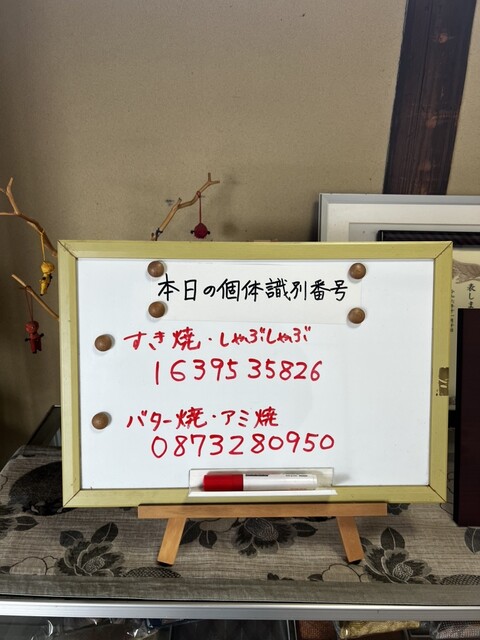 本日の個体識別番号
すき焼・しゃぶしゃぶ
1639535826
バター焼・アミ焼
0873280950